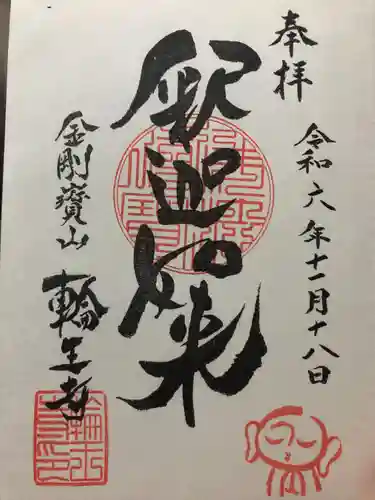 奉拝
令和六年十一月十八日
釈迦如来
金剛寶山
輪王寺